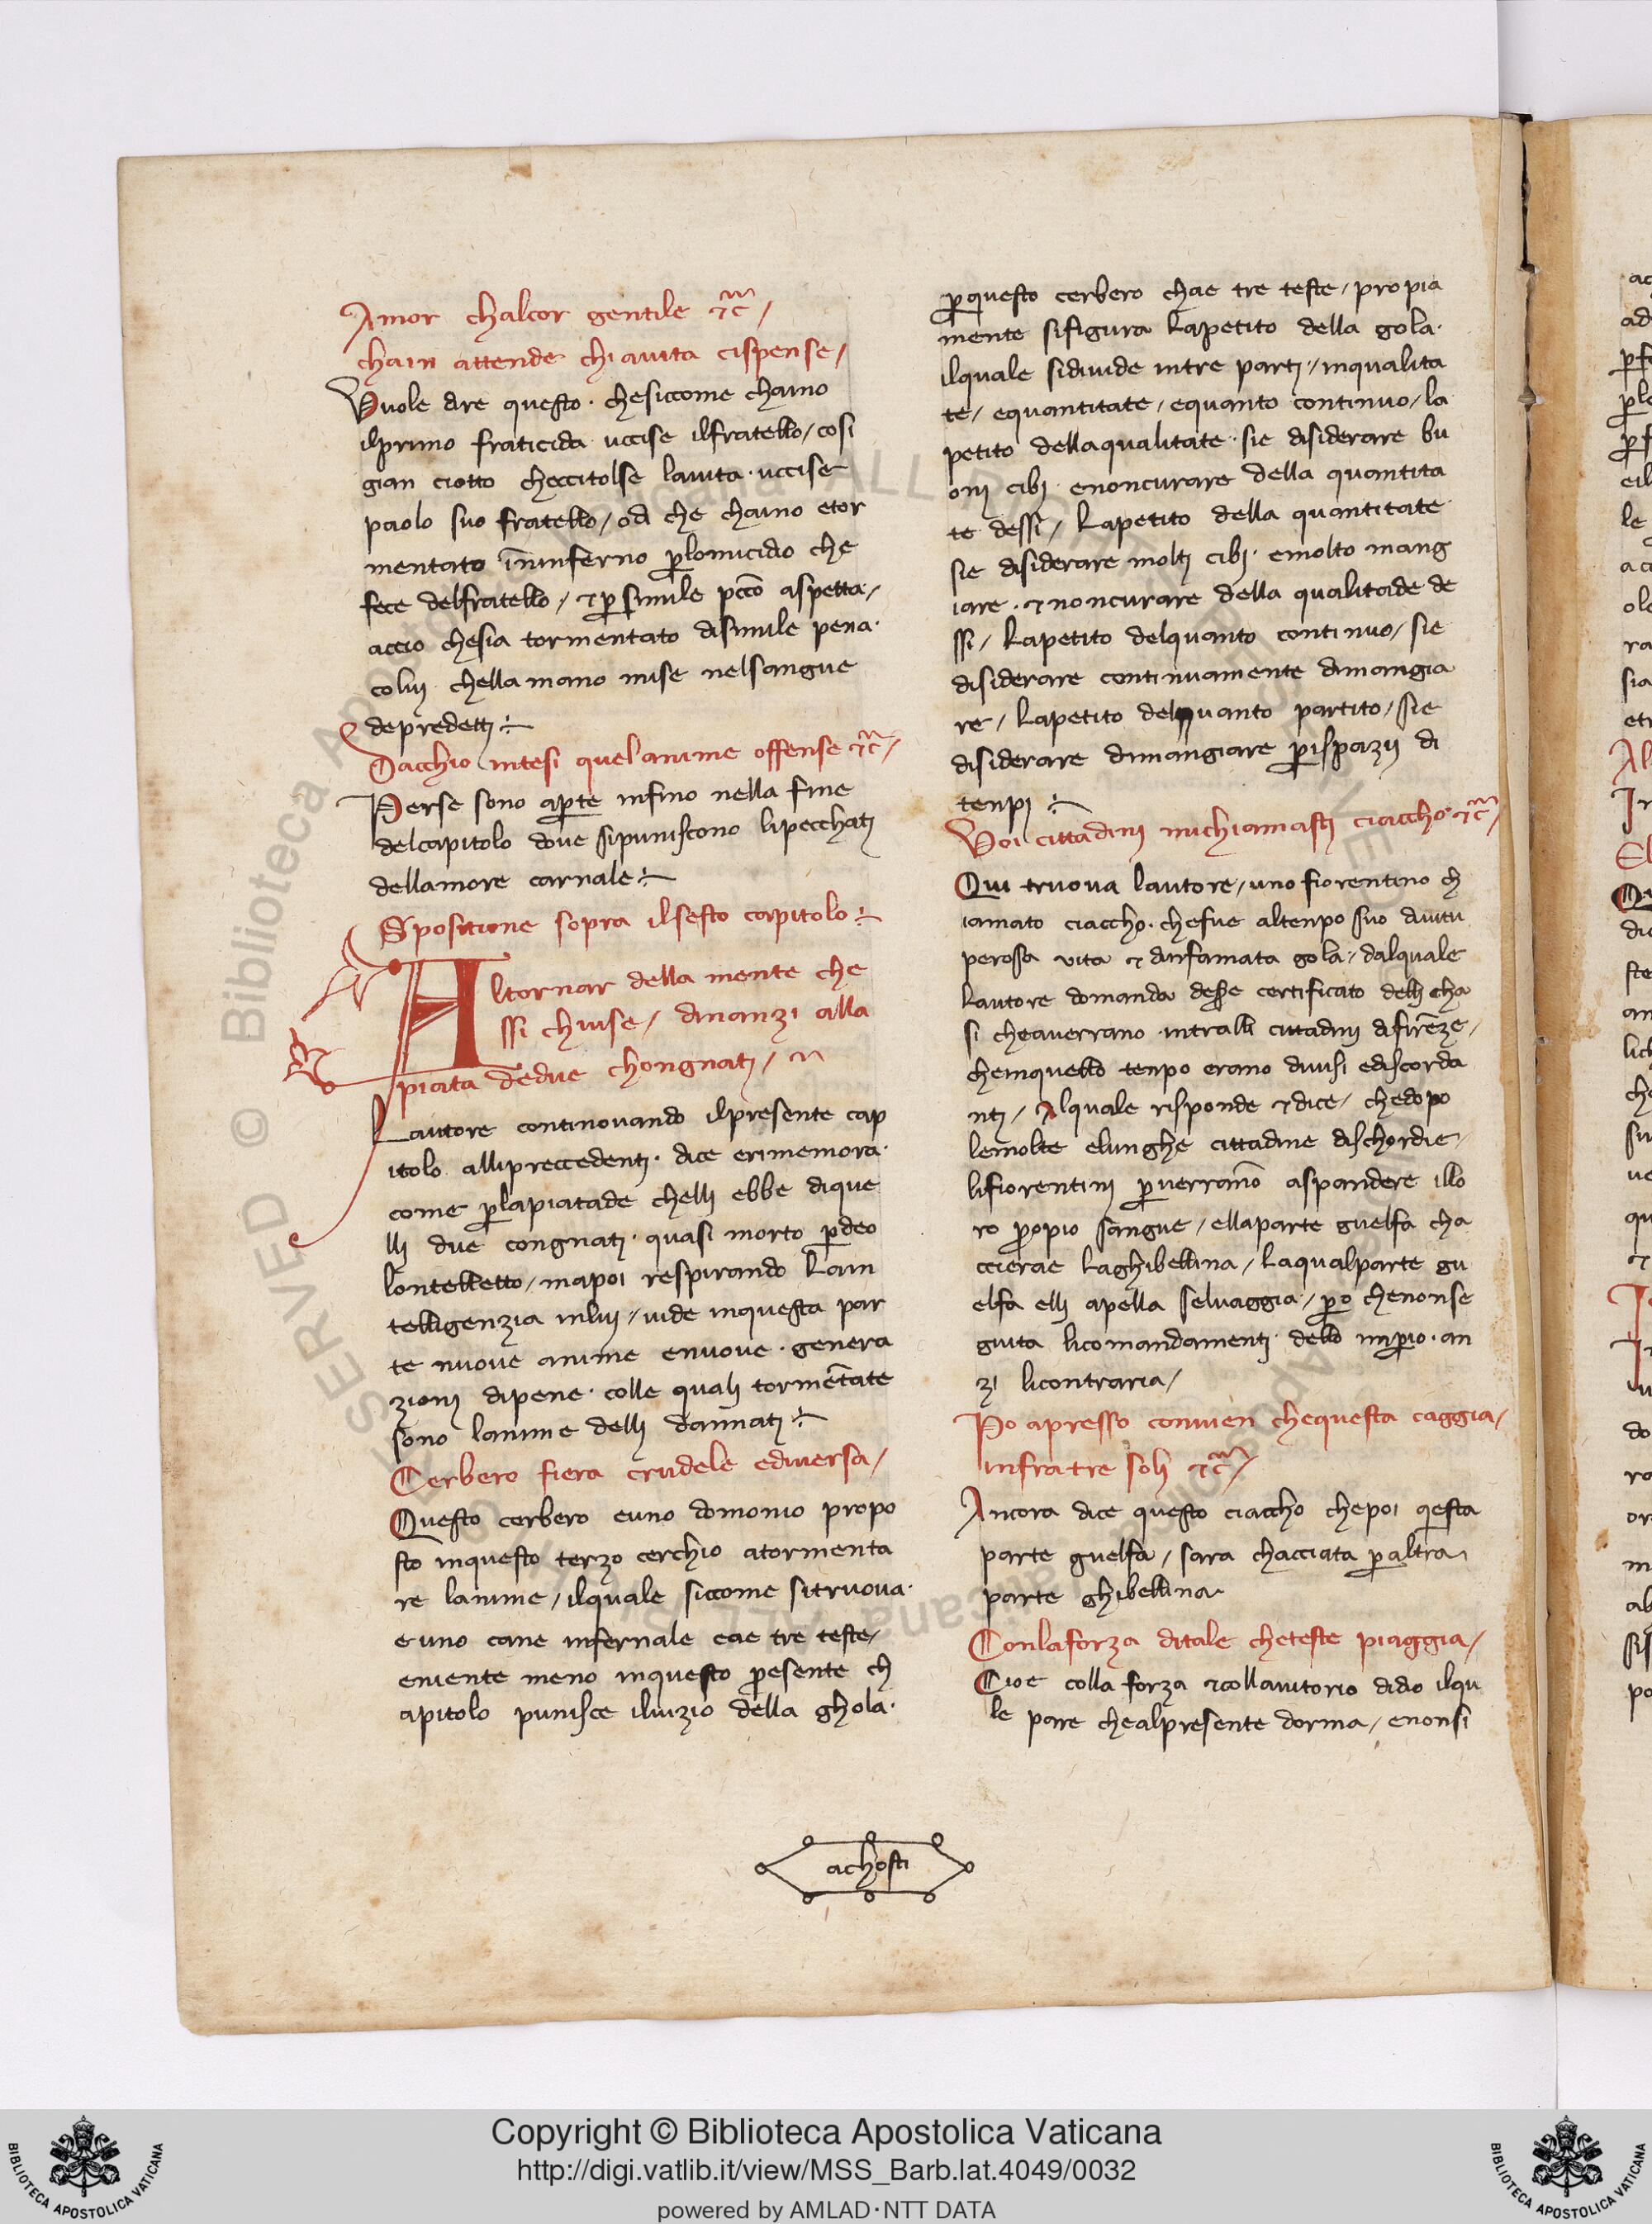 Amor chalcor gentile ⁊c̃ /
chain attende chi auita cispense /
Vuole dire questo · chesiccome chaino
ilprimo fraticida uccise ilfratello / cosi
gian ciotto checcitolse lauita · uccise
paolo suo fratello / od che chaino etor
mentato īninferno ꝑlomicidio che
fece delfratello / ⁊ꝑ simile pccō aspetta /
accio chesia tormentato disimile pena ·
colui chella mano mise nelsangue
depredetti ÷
Dacchio intesi quel anime offense ⁊c̃ /
Perse sono aꝑte infino nella fine
delcapitolo doue sipuniscono lipecchati
dellamore carnale ÷
Spositione sopra ilsesto capitolo ÷
Altornar della mente che
ssi chiuse / dinanzi alla
piata dedue chongnati /
Lautore continouando ilpresente cap
itolo alliprecedenti · dice erimemora ·
come ꝑlapiatade chelli ebbe dique
lli due congnati · quasi morto ꝑdeo
lontelletto / mapoi respirando Lain
telligenzia inlui / uide inquesta par
te nuoue anime enuoue · genera
zioni dipene · colle quali tormētate
sono lanime delli dannati ÷
Cerbero fiera crudele ediuersa /
Questo cerbero euno domonio propo
sto inquesto terzo cerchio atormenta
re lanime / ilquale siccome sitruoua ·
euno cane infernale eae tre teste /
eniente meno inquesto ꝓesente ch
apitolo punisce iluizio della ghola ·
ꝑquesto cerbero chae tre teste / propia
mente sifigura Lapetito della gola ·
ilquale sidiuide intre parti / inqualita
te / equantitate / equanto continuo / la
petito dellaqualitate · sie disiderare bu
oni cibi enoncurare della quantita
te dessi / Lapetito della quantitate
sie disiderare molti cibi · emolto mang
iare · ⁊noncurare della qualitade de
ssi / Lapetito delquanto continuo / sie
disiderare continuamente dimangia
re / Lapetito delquanto partito / sie
disiderare dimangiare ꝑispazii di
tenpi ÷
Voi cittadini michiamasti ciaccho ⁊c̃ /
Qui truoua lautore / uno fiorentino ch
iamato ciaccho · chefue altenpo suo diuitu
perossa uita ⁊ dinfamata gola / dalquale
Lautore domanda dessere certificato delli cha
si cheauerrano intralli cittadini difirēze /
cheinquello tenpo erano diuisi ediscorda
nti / Alquale risponde ⁊dice / chedopo
lemolte elunghe cittadine dischordie /
lifiorentini ꝑuerrāno aspandere illo
ro ꝓopio sangue / ellaparte guelfa cha
ccierae Laghibellina / Laqualparte gu
elfa elli apella seluaggia / ꝑo chenonse
guita licomandamenti dello inꝑio · an
zi licontraria /
Po apresso conuien chequesta caggia /
infra tre soli ⁊c̃ /
Ancora dice questo ciaccho chepoi qesta
parte guelfa / sara chacciata ꝑaltra
parte ghibellina
Conlaforza ditale cheteste piaggia /
Cioe colla forza ⁊collauitorio didio ilqu
le pare chealpresente dorma / enonsi
achosti
Copyright © Biblioteca Apostolica Vaticana
http://digi.vatlib.it/view/MSS_Barb.lat.4049/0032
powered by AMLAD·NTT DATA
BIBLIOTECA APOSTOLICA VATICANA
BIBLIOTECA APOSTOLICA VATICANA